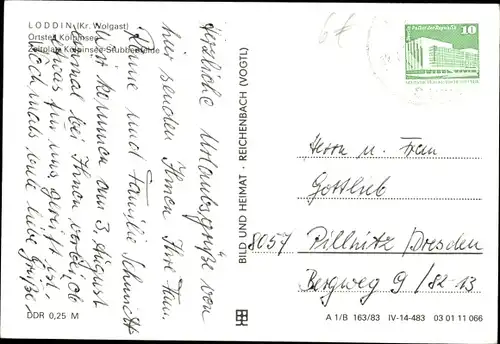 LODDIN (Kr. Wolgast)
Ortsteil Kölpinsee
Zeltplatz Kölpinsee-Stubbenfelde
Herzliche Urlaubsgrüße von
hier senden Ihnen Ihre Fam.
und Familie Schmidt
Wir kommen am 3. August
einmal bei Ihnen vorbei, ob
etwas für uns gereift ist.
Nochmals viele liebe Grüße
DDR 0,25 M
BILD UND HEIMAT · REICHENBACH (VOGTL)
10
Herrn u. Frau
Gottlieb
8057 Pillnitz/Dresden
Bergweg 9 / 82-13
A 1/B 163/83 IV-14-483 03 01 11 066